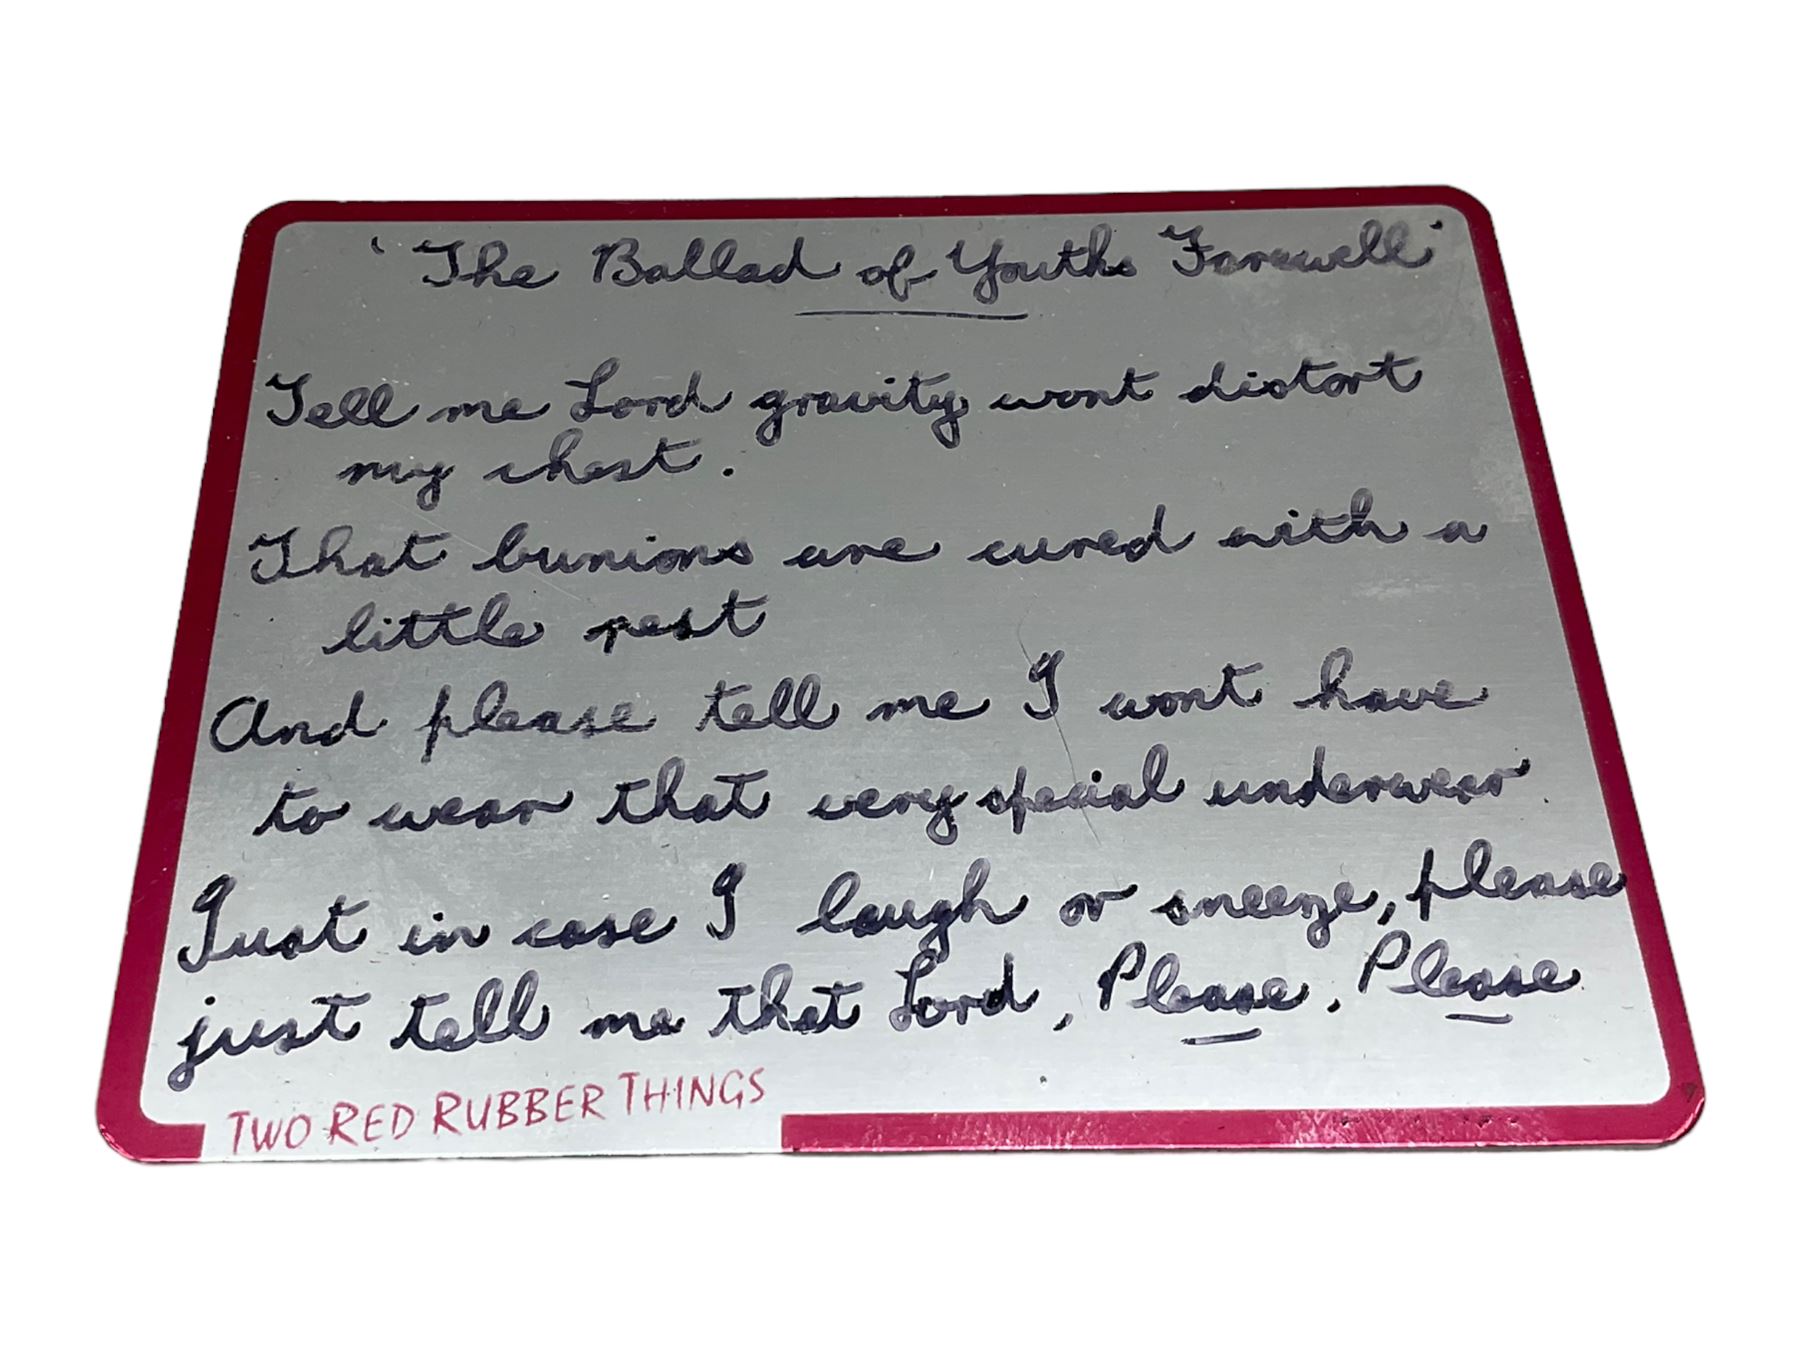 'The Ballad of Youths Farewell'
Tell me Lord gravity wont distort
my chest.
That bunions are cured with a
little rest
And please tell me I wont have
to wear that very special underwear
Just in case I laugh or sneeze, please
just tell me that Lord, Please, Please
TWO RED RUBBER THINGS